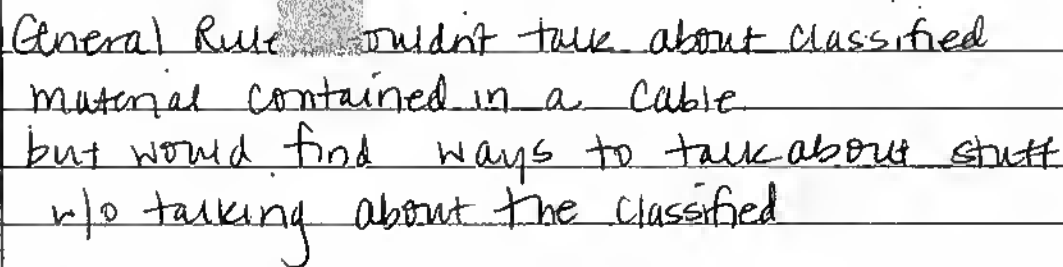 General Rule ouldn't talk about classified
material contained in a cable
but would find ways to talk about stuff
w/o talking about the classified